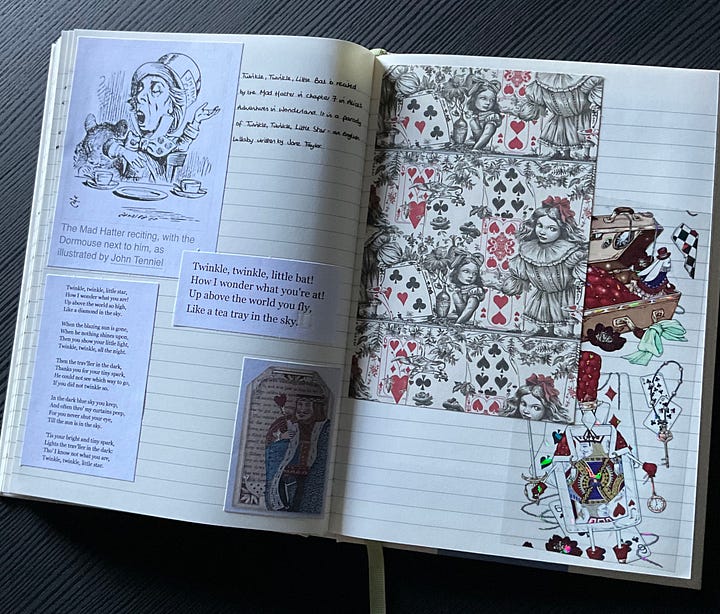 Twinkle, Twinkle, Little Bat is recited
by the Mad Hatter in chapter 7 in Alice's
Adventures in Wonderland. It is a parody
of Twinkle, Twinkle, Little Star - an English
lullaby written by Jane Taylor.
The Mad Hatter reciting, with the
Dormouse next to him, as
illustrated by John Tenniel
Twinkle, twinkle, little bat!
How I wonder what you're at!
Up above the world you fly,
Like a tea tray in the sky.
Twinkle, twinkle, little star,
How I wonder what you are!
Up above the world so high,
Like a diamond in the sky.
When the blazing sun is gone,
When he nothing shines upon,
Then you show your little light,
Twinkle, twinkle, all the night.
Then the trav'ller in the dark,
Thanks you for your tiny spark,
He could not see which way to go,
If you did not twinkle so.
In the dark blue sky you keep,
And often thro' my curtains peep,
For you never shut your eye,
Till the sun is in the sky.
'Tis your bright and tiny spark,
Lights the trav'ller in the dark:
Tho' I know not what you are,
Twinkle, twinkle, little star.